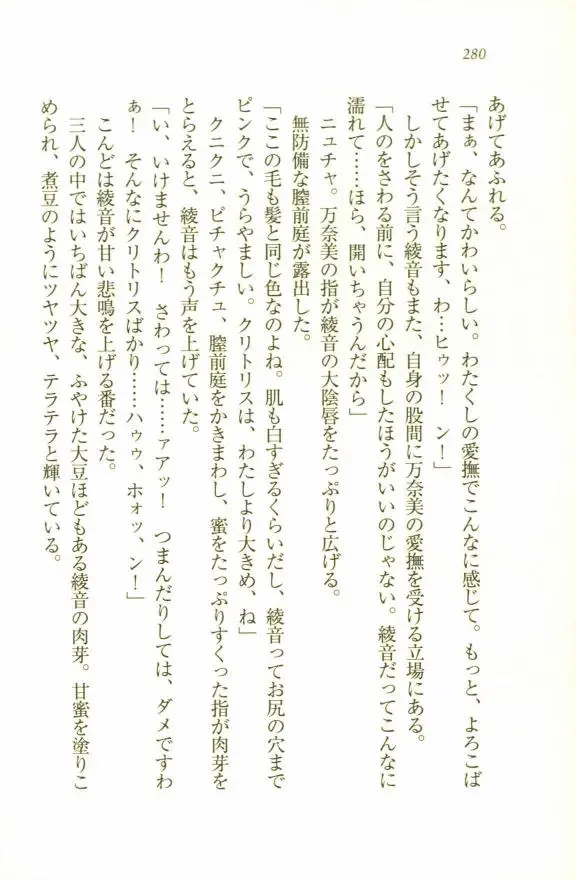 280
あげてあふれる。
「まぁ、なんてかわいらしい。わたくしの愛撫でこんなに感じて。もっと、よろこば
せてあげたくなります、わ…ヒゥッ！　ン！」
しかしそう言う綾音もまた、自身の股間に万奈美の愛撫を受ける立場にある。
「人のをさわる前に、自分の心配もしたほうがいいのじゃない。綾音だってこんなに
濡れて……ほら、開いちゃうんだから」
ニュチャ。万奈美の指が綾音の大陰唇をたっぷりと広げる。
無防備な膣前庭が露出した。
「ここの毛も髪と同じ色なのよね。肌も白すぎるくらいだし、綾音ってお尻の穴まで
ピンクで、うらやましい。クリトリスは、わたしより大きめ、ね」
クニクニ、ピチャクチュ、膣前庭をかきまわし、蜜をたっぷりすくった指が肉芽を
とらえると、綾音はもう声を上げていた。
「い、いけませんわ！　さわっては……ァアッ！　つまんだりしては、ダメですわ
ぁ！　そんなにクリトリスばかり……ハゥゥ、ホォッ、ン！」
こんどは綾音が甘い悲鳴を上げる番だった。
三人の中ではいちばん大きな、ふやけた大豆ほどもある綾音の肉芽。甘蜜を塗りこ
められ、煮豆のようにツヤツヤ、テラテラと輝いている。